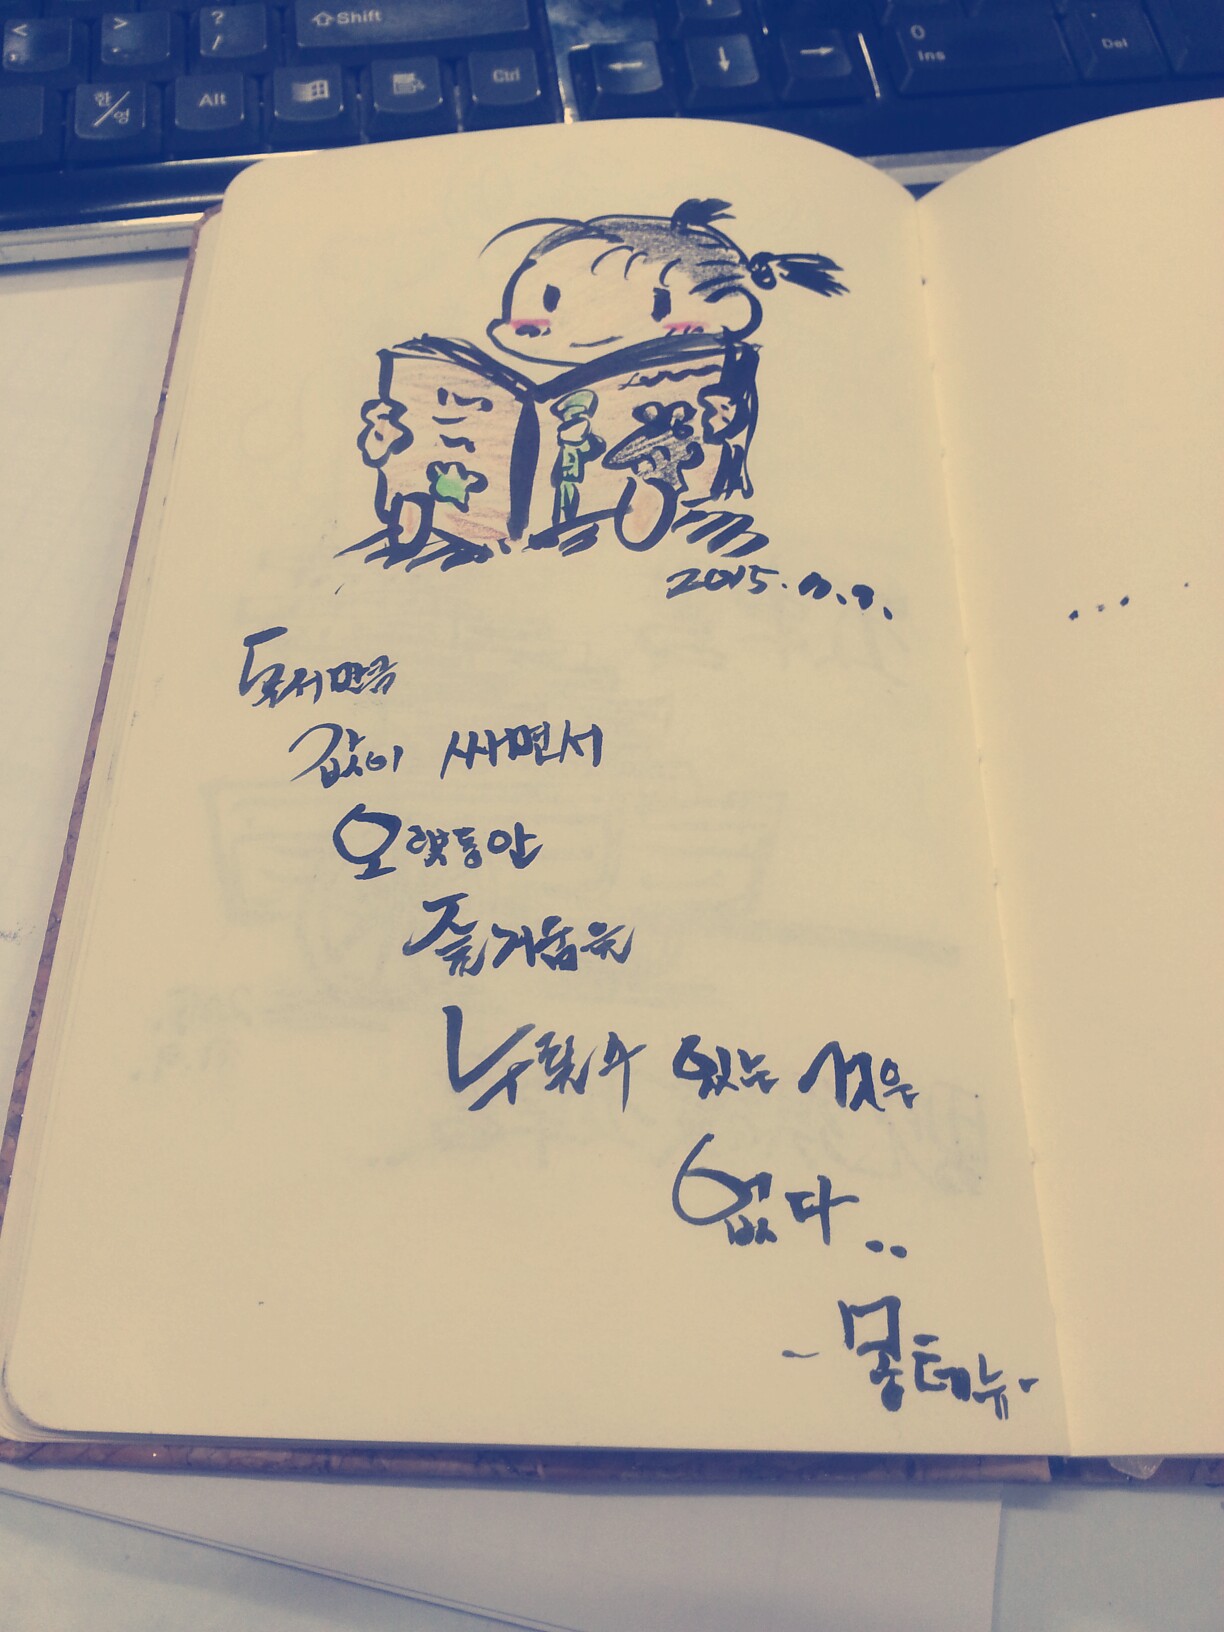 <
>
?
/
⇧Shift
한/영
Alt
Ctrl
←
↓
→
0
Ins
Del
독서만큼
값이 싸면서
오랫동안
즐거움을
누릴수 있는 것은
없다..
- 몽테뉴 -